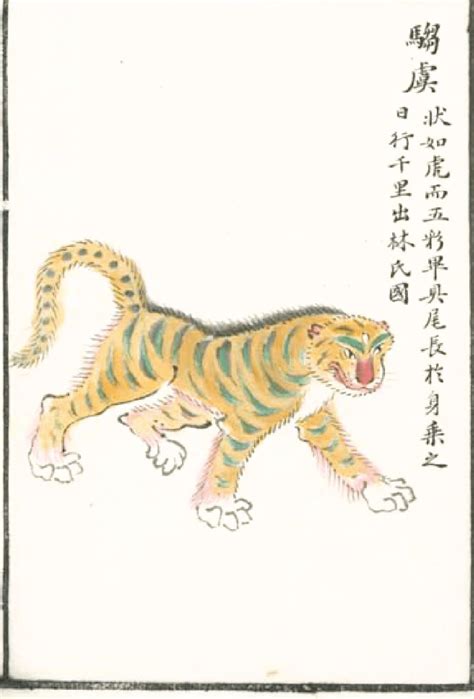 騶虞
狀如虎而五彩畢具尾長於身乘之
日行千里出林氏國